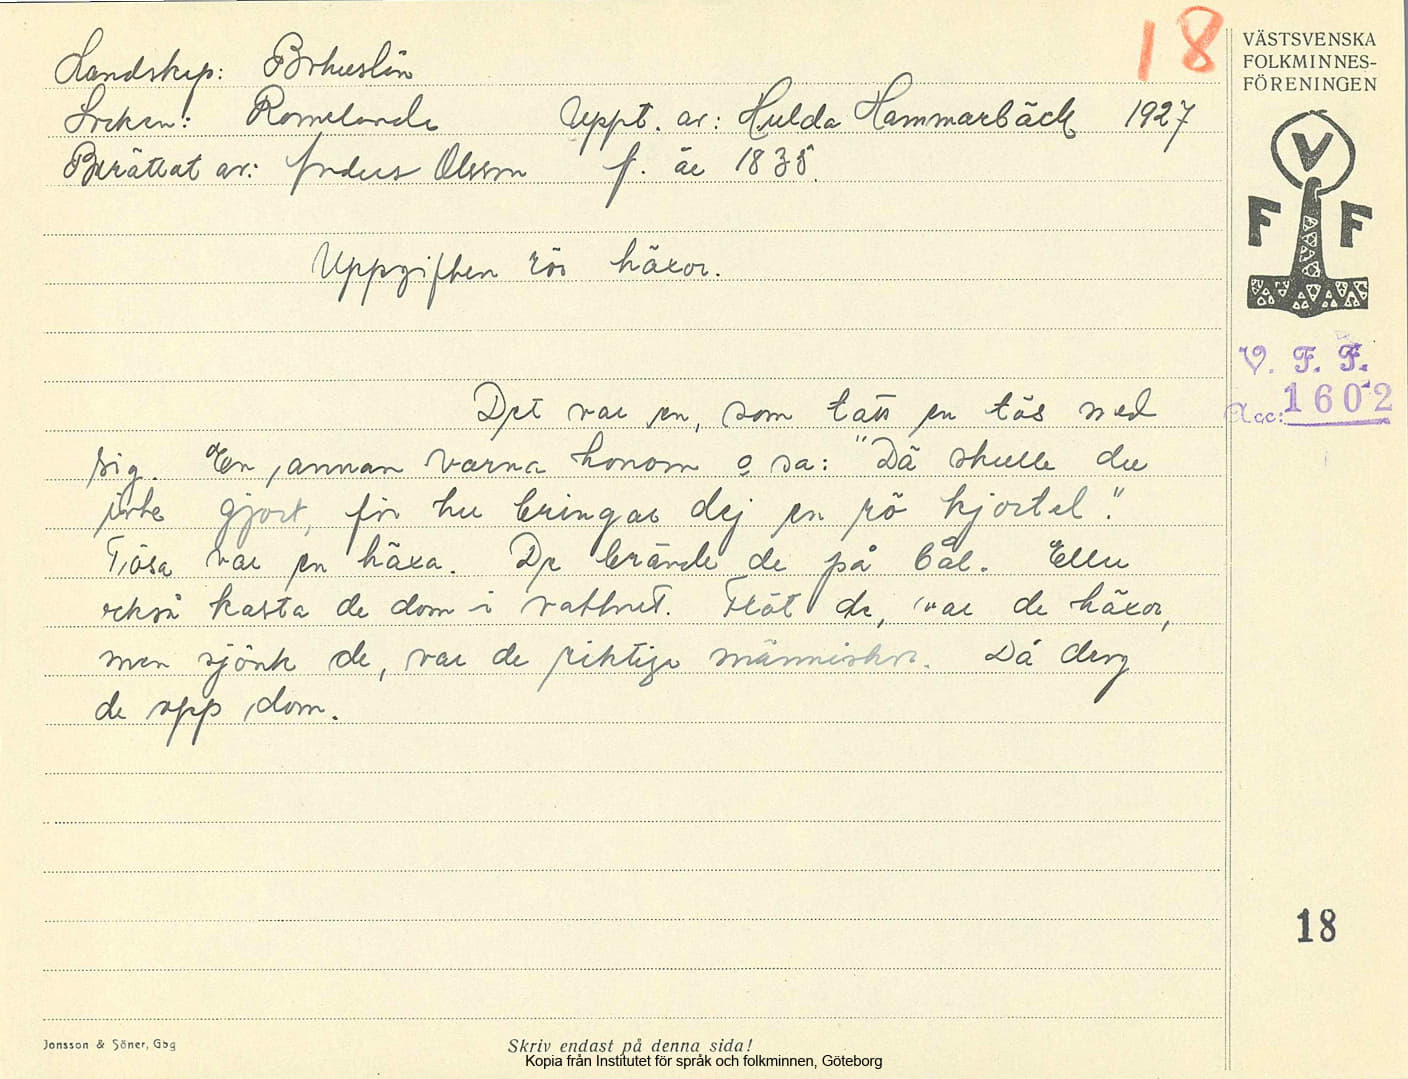 18
Landskap: Bohuslän
Socken: Romelanda Uppt. av: Hulda Hammarbäck 1927
Berättat av: Anders Olsson f. år 1835.
Uppgiften rör häxor.
Det var en, som tatt en tös med
sig. En annan varna honom o sa: "Dä skulle du
inte gjort, för hu bringar dej en rö kjortel."
Tösa var en häxa. De brände de på bål. Eller
också kasta de dom i vattnet. Flöt de, var de häxor,
men sjönk de, var de riktiga människor. Då drog
de opp dom.
VÄSTSVENSKA
FOLKMINNES-
FÖRENINGEN
V
F F
V. F. F.
Acc: 1602
18
Jonsson & Söner, Gbg
Skriv endast på denna sida!
Kopia från Institutet för språk och folkminnen, Göteborg